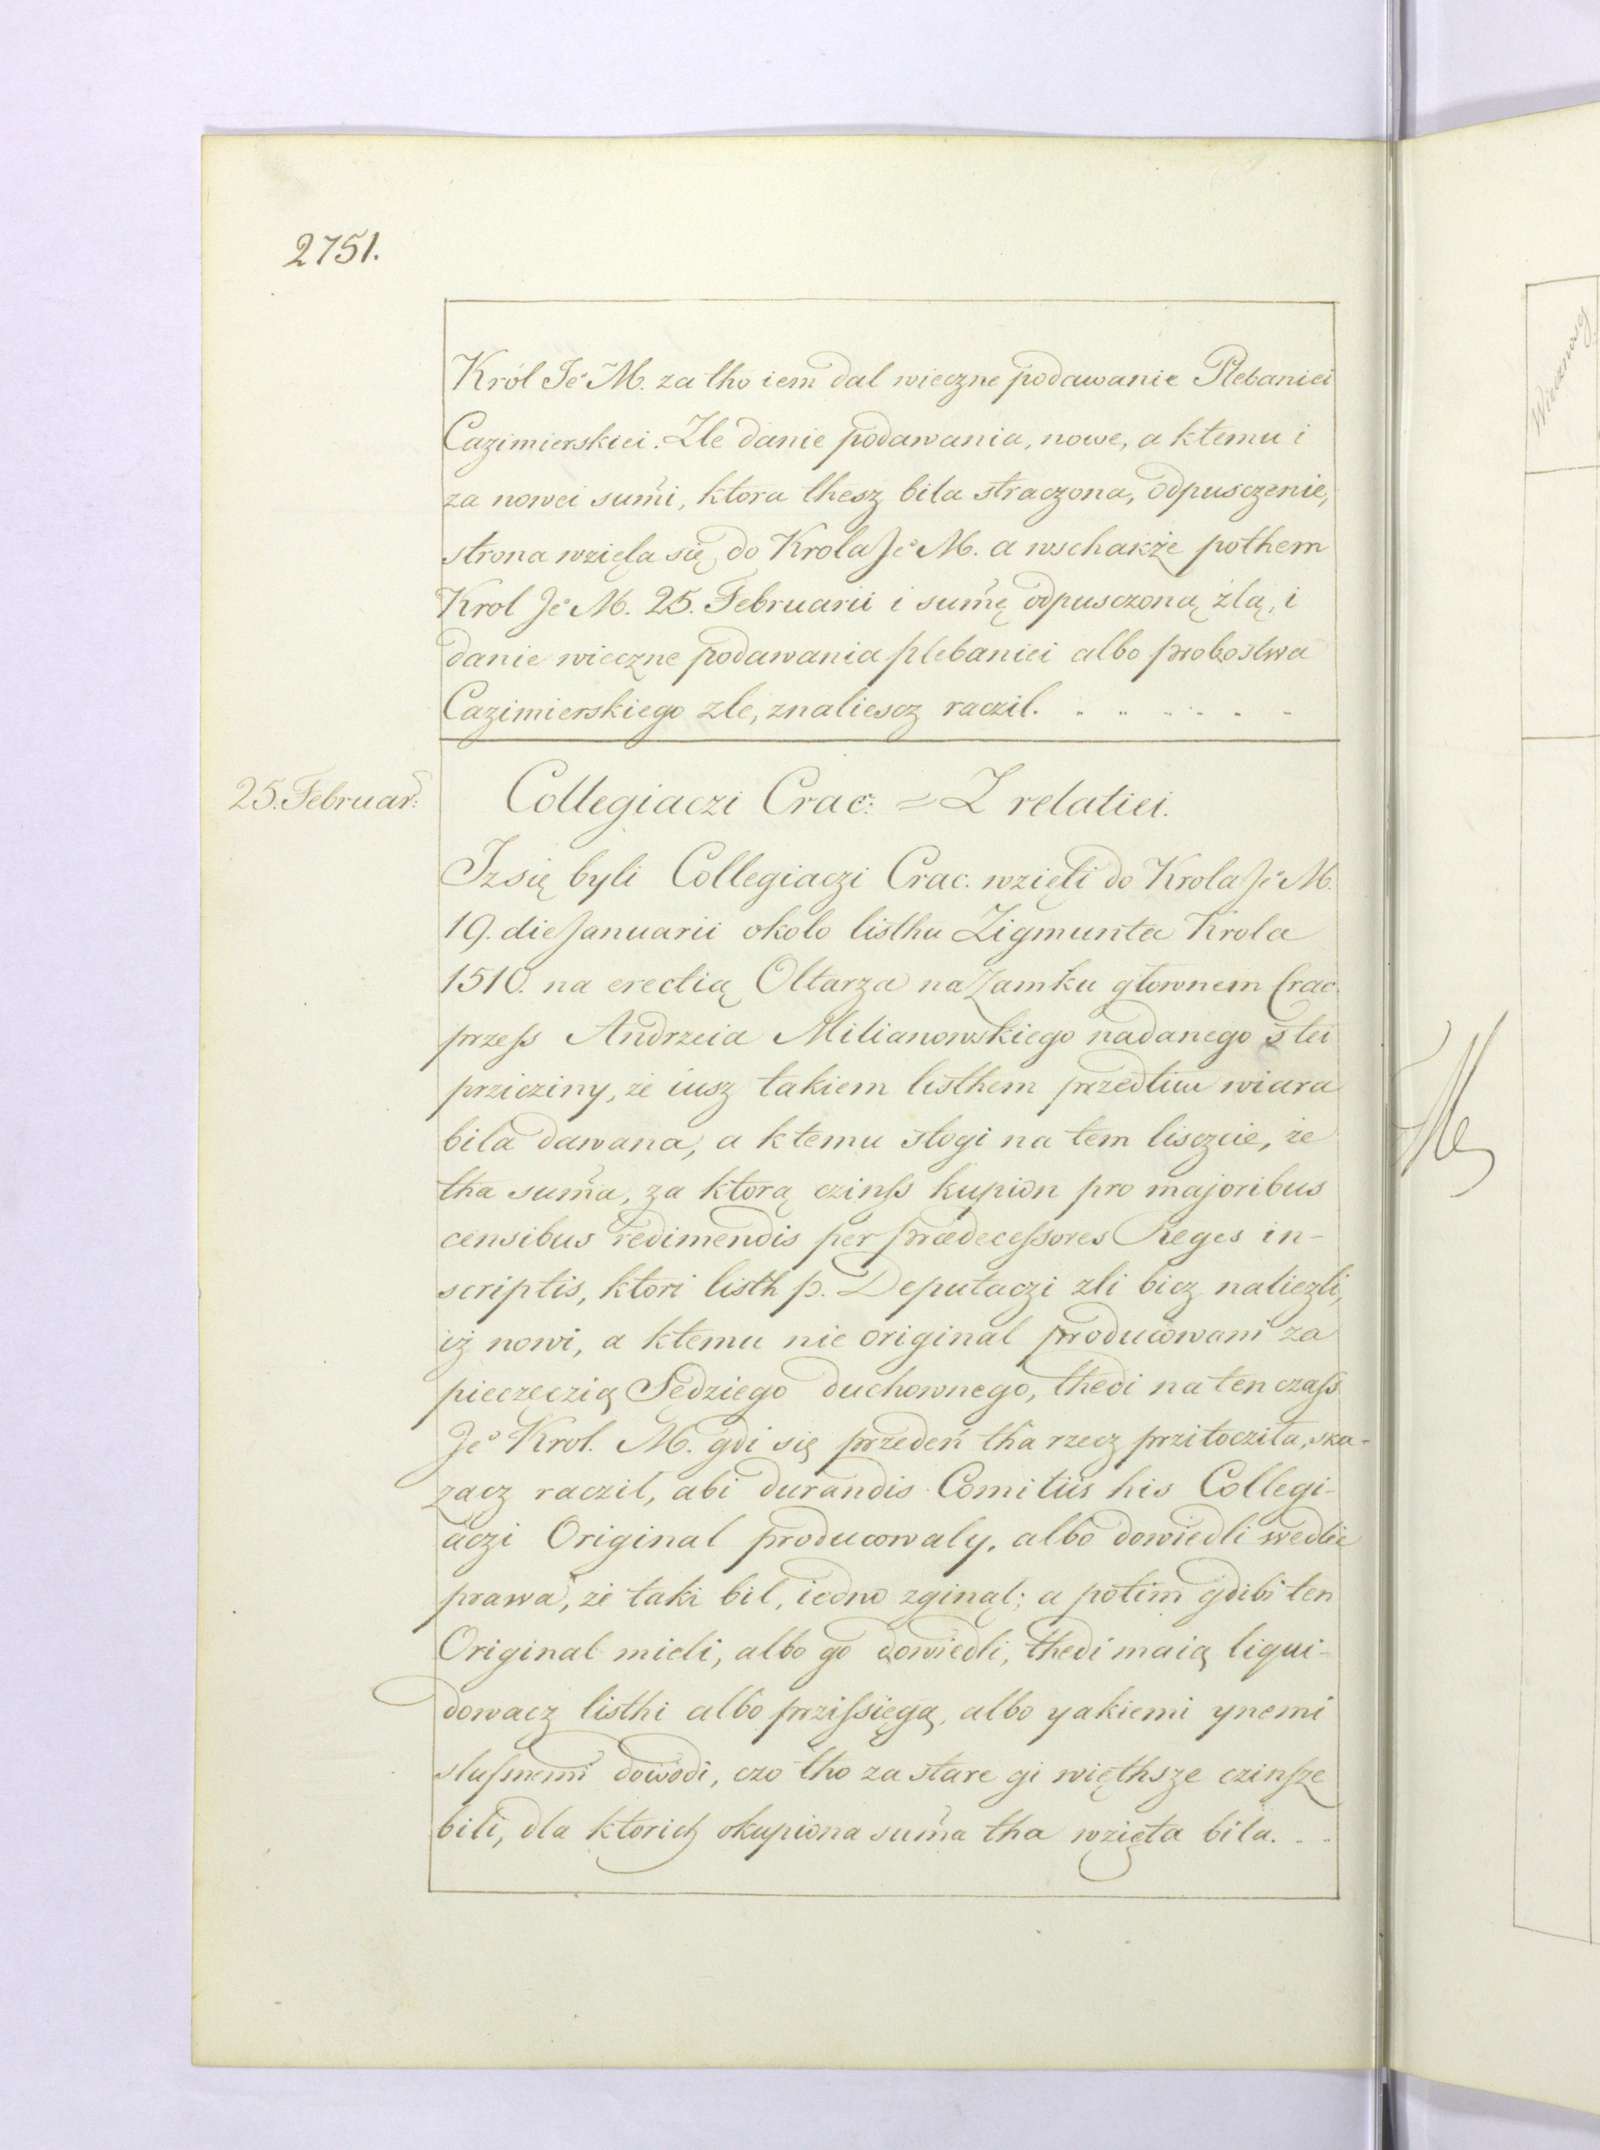 2751.
Król Je M. za tho iem dal wieczne podawanie Plebaniei
Cazimierskiei. Złe danie podawania, nowe, a ktemu i
za nowei sumi, ktora thesz bila straczona, odpusczenie,
strona wzięla się do Krola Je M. a wschakże pothem
Krol Je M. 25. Februarii i sumę odpusczoną złą, i
danie wieczne podawania plebaniei albo probostwa
Cazimierskiego złe, znaliescz raczil.
25. Februar:
Collegiaczi Crac: = Z relatiei.
Iz się byli Collegiaczi Crac. wzięli do Krola Je M.
19. die Januarii około listhu Zigmunta Krola
1510. na erectią Oltarza na Zamku głownem Crac.
przess Andrzeia Milianowskiego nadanego s tei
przicziny, że iusz takiem listhem przedtim wiara
bila dawana, a ktemu stogi na tem lisczcie, że
tha suma, za ktorą czinss kupion pro majoribus
censibus redimendis per praedecessores Reges in-
scriptis, ktori listh p. Deputaczi zli bicz naliezli,
iż nowi, a ktemu nie original producowani za
pieczęczią Sędziego duchownego, thedi na ten czass
Je Krol. M. gdi się przedeń tha rzecz przitoczila, ska-
zacz raczil, abi durandis Comitiis his Collegi-
aczi Original producowaly, albo dowiedli wedlie
prawa, że taki bil, iedno zginąl; a potim gdibi ten
Original mieli, albo go dowiedli, thedi maią liqui-
dowacz listhi albo przissięgą, albo yakiemi ynemi
slussnemi dowodi, czo tho za stare gi więthsze czinsze
bili, dla ktorich okupiona suma tha wzięta bila.